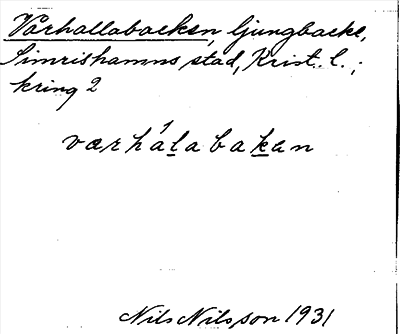 Vårhallabacken, ljungbacke,
Simrishamns stad, Krist. l.;
kring 2
værhálabakan
Nils Nilsson 1931